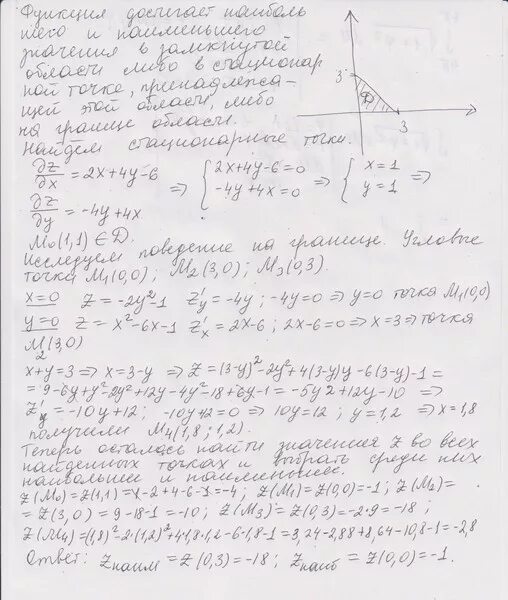 Функция достигает наиболь
шего и наименьшего
значения в замкнутой
области либо в стационар
ной точке, принадлежа-
щей этой области, либо
на границе области.
Найдем стационарные точки.
3
D
3
∂z/∂x = 2x+4y-6
∂z/∂y = -4y+4x
⇒ { 2x+4y-6=0
-4y+4x=0 ⇒ { x=1
y=1 ⇒
M₀(1,1) ∈ D.
Исследуем поведение на границе. Угловые
точки M₁(0,0); M₂(3,0); M₃(0,3).
x=0 z=-2y²-1 z'y=-4y; -4y=0 ⇒ y=0 точка M₁(0,0)
y=0 z=x²-6x-1 z'x=2x-6; 2x-6=0 ⇒ x=3 ⇒ точка
M₂(3,0)
x+y=3 ⇒ x=3-y ⇒ z=(3-y)²-2y²+4(3-y)y-6(3-y)-1=
=9-6y+y²-2y²+12y-4y²-18+6y-1=-5y²+12y-10 ⇒
z'y=-10y+12; -10y+12=0 ⇒ 10y=12; y=1,2 ⇒ x=1,8
получили M₄(1,8; 1,2).
Теперь осталось найти значения z во всех
найденных точках и выбрать среди них
наибольшее и наименьшее.
z(M₀)=z(1,1)=1-2+4-6-1=-4; z(M₁)=z(0,0)=-1; z(M₂)=
=z(3,0)=9-18-1=-10; z(M₃)=z(0,3)=-2·9=-18;
z(M₄)=(1,8)²-2·(1,2)²+4·1,8·1,2-6·1,8-1=3,24-2,88+8,64-10,8-1=-2,8
Ответ: z наим=z(0,3)=-18; z наиб=z(0,0)=-1.